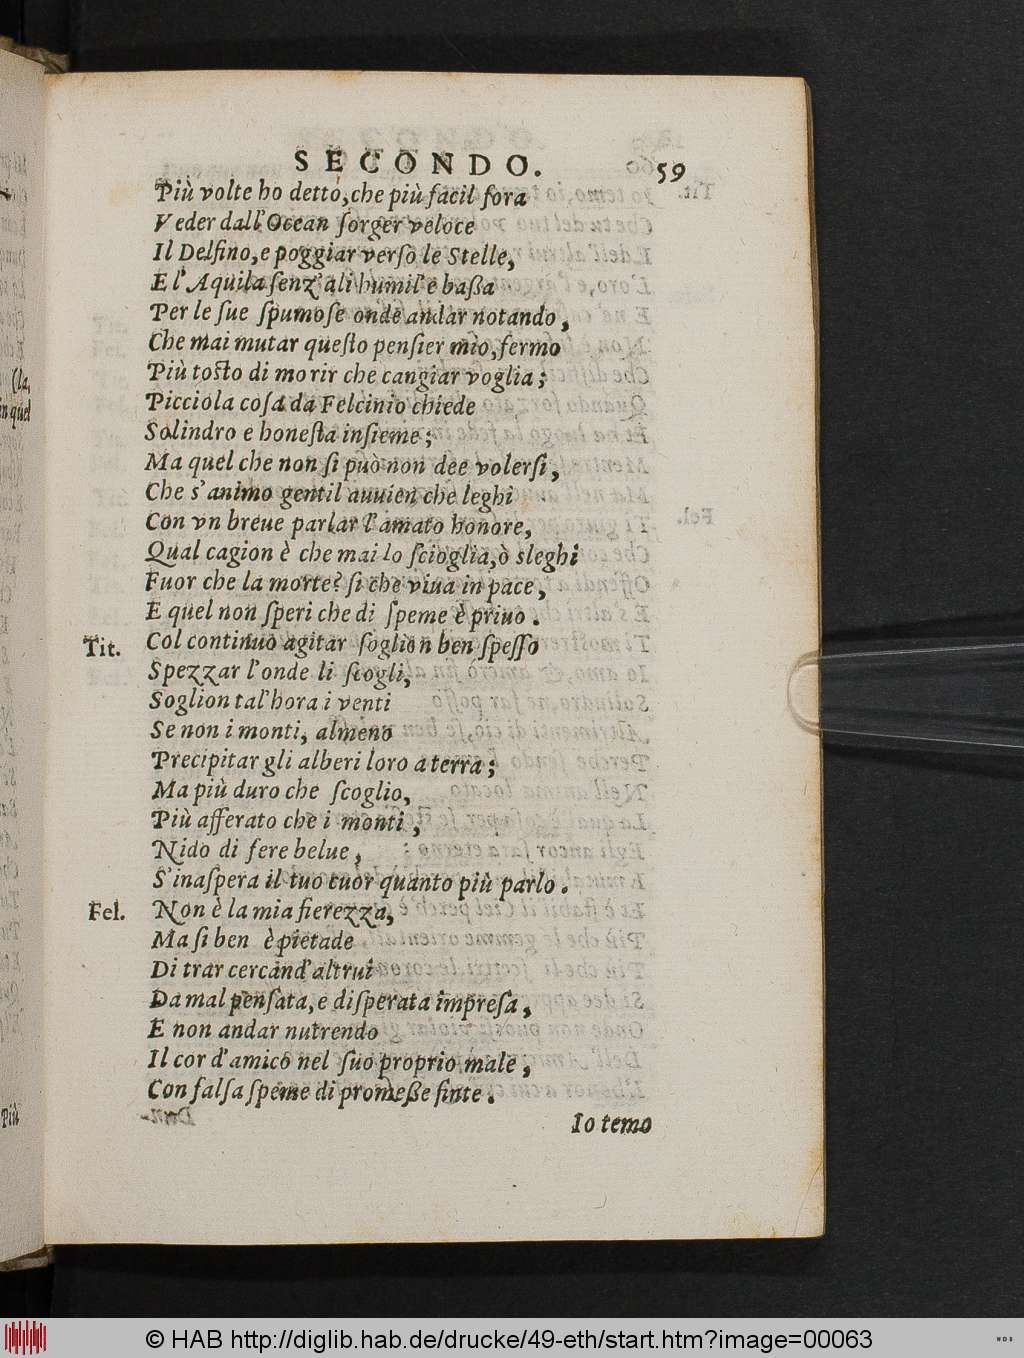 SECONDO. 59
Più volte ho detto, che più facil fora
Veder dall'Ocean ſorger veloce
Il Delfino, e poggiar verſo le Stelle,
E l'Aquila ſenz'ali humil'e baßa
Per le ſue ſpumoſe onde andar notando,
Che mai mutar queſto penſier mio, fermo
Più toſto di morir che cangiar voglia;
Picciola coſa da Felcinio chiede
Solindro e honeſta inſieme;
Ma quel che non ſi può non dee volerſi,
Che s'animo gentil auuien che leghi
Con vn breue parlar l'amato honore,
Qual cagion è che mai lo ſcioglia, ò sleghi
Fuor che la morte? ſi che viua in pace,
E quel non ſperi che di ſpeme è priuo.
Tit. Col continuo agitar ſoglion ben ſpeſſo
Spezzar l'onde li ſcogli,
Soglion tal'hora i venti
Se non i monti, almeno
Precipitar gli alberi loro a terra;
Ma più duro che ſcoglio,
Più afferato che i monti,
Nido di fere belue,
S'inaſpera il tuo cuor quanto più parlo.
Fel. Non è la mia fierezza,
Ma ſi ben è pietade
Di trar cercand'altrui
Da mal penſata, e diſperata impreſa,
E non andar nutrendo
Il cor d'amico nel ſuo proprio male,
Con falſa ſpeme di promeße finte.
Io temo
(la,
in quel
Più
© HAB http://diglib.hab.de/drucke/49-eth/start.htm?image=00063